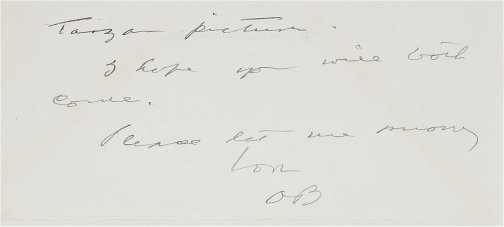 Tarzan picture.
I hope you will both
come.
Please let me know
Love
OB